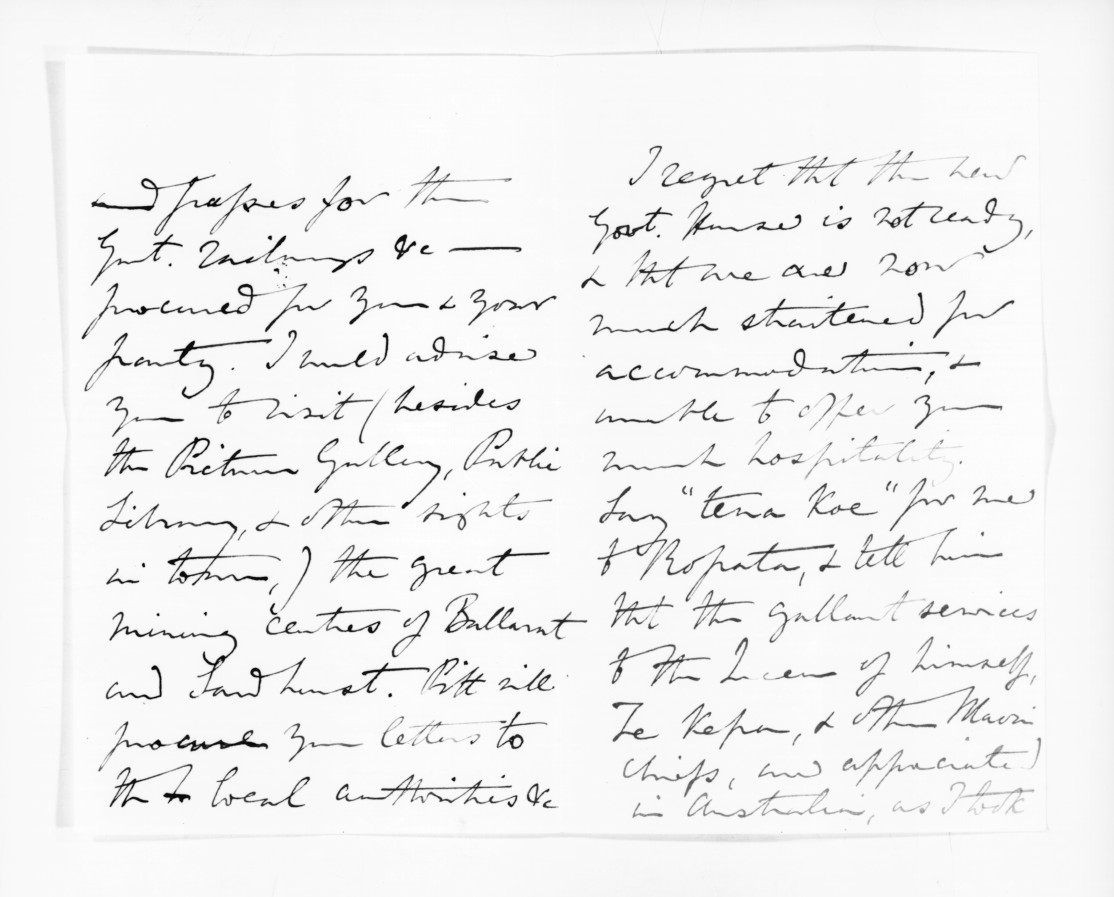 and passes for the
Govt. railways &c —
procured for you & your
party. I would advise
you to visit (besides
the Picture Gallery, Public
Library, & other sights
in town,) the great
mining centres of Ballarat
and Sandhurst. Pitt will
procure you letters to
the local authorities &c
I regret that the new
Govt. House is not ready,
& that we are now
much straitened for
accommodation, &
unable to offer you
much hospitality.
Say "tena Koe" for me
to Ropata, & tell him
that the gallant services
to the Queen of himself,
Te Kepa, & other Maori
chiefs, are appreciated
in Australia, as I took